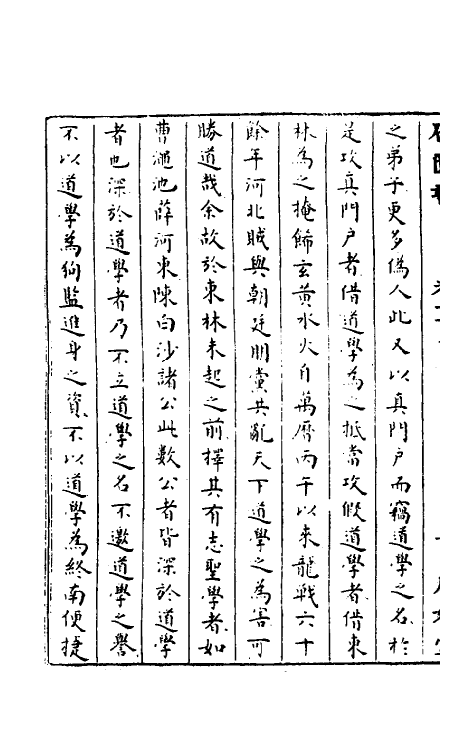 之弟子更多偽人此又以真門户而竊道學之名於
是攻真門户者借道學為之抵當攻假道學者借東
林為之掩餙玄黄水火自萬曆丙午以來龍戰六十
餘年河北賊與朝廷朋黨共亂天下道學之為害可
勝道哉余故於東林未起之前擇其有志聖學者如
曹澠池薛河東陳白沙諸公此數公者皆深於道學
者也深於道學者乃不立道學之名不邀道學之譽
不以道學為狥監進身之資不以道學為終南便捷